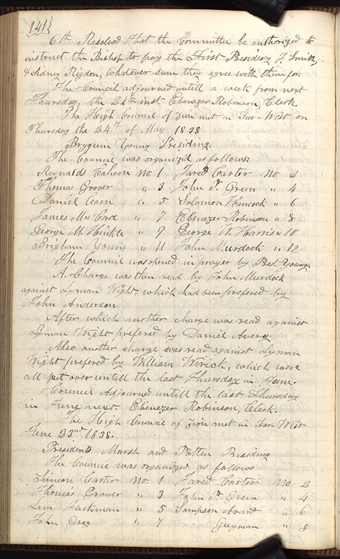 141
6th Resolved That the Committee be authorized to
instruct the Bishop to pay the First Presidency, J. Smith jr
& Sidney Rigdon, whatever sum they agree with them for.
The Council adjourned untill a week from next
Thursday, the 24th inst. Ebenezer Robinson, Clerk.
The High Council of Zion met in Far-West on
Thursday the 24th of May 1838.
Brigham Young Presiding.
The Council was organized as follows.
Reynolds Cahoon No. 1 Jared Carter No. 2
Thomas Grover " 3 John P. Green " 4
Daniel Carn " 5 Solomon Hancock " 6
James Mc Cord " 7 Ebenezer Robinson " 8
George M. Hinkle " 9 George W. Harris " 10
Brigham Young " 11 John Murdock " 12
The Council was opened in prayer by Pres. Young
A Charge was then read by John Murdock
against Lyman Wight which had been prefered by
John Anderson
After which another charge was read against
Lyman Wight prefered by Daniel Avery
Also another charge was read against Lyman
Wight prefered by William Wirick, which were
all put over untill the last Thursday in June.
Council Adjourned untill the last Thursday
in June next. Ebenezer Robinson, Clerk.
The High Council of Zion met in Far West
June 23rd 1838.
Presidents Marsh and Patten Presiding
The Council was organized as follows
Simeon Carter No. 1 Jared Carter No. 2
Thomas Grover " 3 John P. Green " 4
Levi Jackman " 5 Sampson Avard " 6
John " 7 Guyman " 8